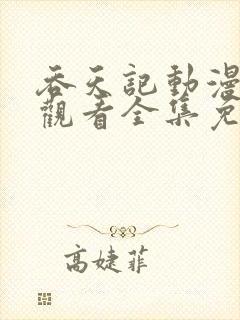 吞天記動漫
觀看全集免
高婕菲